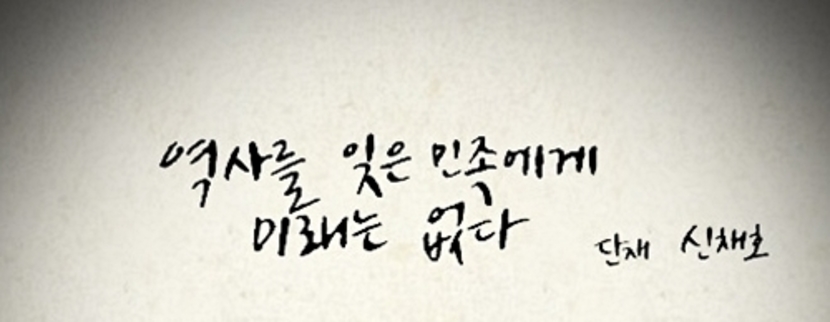 역사를 잊은 민족에게
미래는 없다
단재 신채호